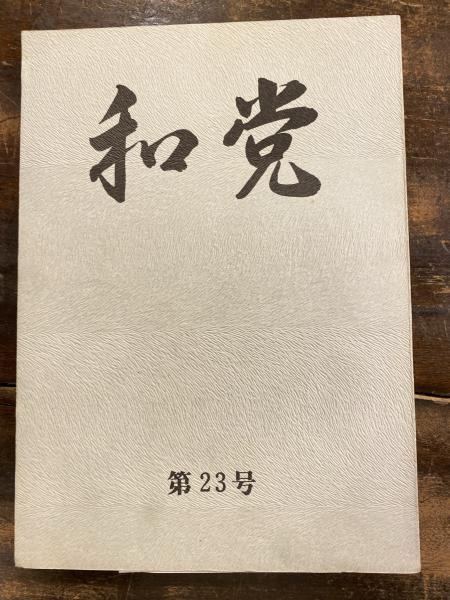 和党
第23号